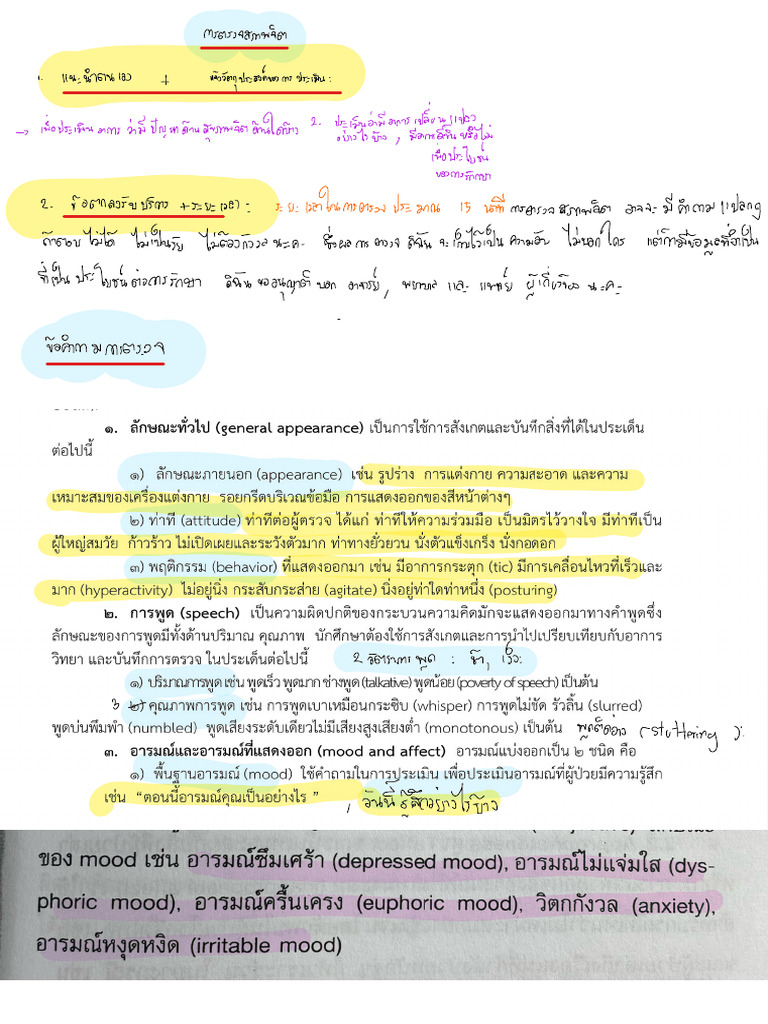 การตรวจสภาพจิต
1. แนะนำตนเอง + แจ้งวัตถุประสงค์ของการ ประเมิน :
→ เพื่อประเมิน อาการ ว่ามี ปัญหาด้าน สุขภาพจิต ด้านใดบ้าง
2. ประเมินว่ามีอาการ เปลี่ยนแปลง
อย่างไรบ้าง , มีอาการดีขึ้น หรือไม่
เพื่อประโยชน์
ของการรักษา
2. ข้อตกลงรับบริการ + ระยะเวลา : ระยะเวลาในการตรวจ ประมาณ 15 นาที การตรวจสภาพจิต อาจจะมีคำถามแปลกๆ
ถ้าตอบไม่ได้ ไม่เป็นไร ไม่ต้องกังวลนะคะ ซึ่งผลการตรวจ ดิฉัน จะเก็บไว้เป็น ความลับ ไม่บอกใคร แต่ถ้ามีข้อมูลที่จำเป็น
ที่เป็น ประโยชน์ต่อการรักษา ดิฉันขออนุญาติบอก อาจารย์, พยาบาล และ แพทย์ ผู้เกี่ยวข้อง นะคะ
ข้อคำถามการตรวจ
๑. ลักษณะทั่วไป (general appearance) เป็นการใช้การสังเกตและบันทึกสิ่งที่ได้ในประเด็น
ต่อไปนี้
๑) ลักษณะภายนอก (appearance) เช่น รูปร่าง การแต่งกาย ความสะอาด และความ
เหมาะสมของเครื่องแต่งกาย รอยกรีดบริเวณข้อมือ การแสดงออกของสีหน้าต่างๆ
๒) ท่าที (attitude) ท่าทีต่อผู้ตรวจ ได้แก่ ท่าทีให้ความร่วมมือ เป็นมิตรไว้วางใจ มีท่าทีเป็น
ผู้ใหญ่สมวัย ก้าวร้าว ไม่เปิดเผยและระวังตัวมาก ท่าทางยั่วยวน นั่งตัวแข็งเกร็ง นั่งกอดอก
๓) พฤติกรรม (behavior) ที่แสดงออกมา เช่น มีอาการกระตุก (tic) มีการเคลื่อนไหวที่เร็วและ
มาก (hyperactivity) ไม่อยู่นิ่ง กระสับกระส่าย (agitate) นิ่งอยู่ท่าใดท่าหนึ่ง (posturing)
๒. การพูด (speech) เป็นความผิดปกติของกระบวนความคิดมักจะแสดงออกมาทางคำพูดซึ่ง
ลักษณะของการพูดมีทั้งด้านปริมาณ คุณภาพ นักศึกษาต้องใช้การสังเกตและการนำไปเปรียบเทียบกับอาการ
วิทยา และบันทึกการตรวจ ในประเด็นต่อไปนี้ 2 อัตราการพูด : ช้า, เร็ว
๑) ปริมาณการพูด เช่น พูดเร็ว พูดมาก ช่างพูด (talkative) พูดน้อย (poverty of speech) เป็นต้น
3 ๒) คุณภาพการพูด เช่น การพูดเบาเหมือนกระซิบ (whisper) การพูดไม่ชัด รัวลิ้น (slurred)
พูดบ่นพึมพำ (numbled) พูดเสียงระดับเดียวไม่มีเสียงสูงเสียงต่ำ (monotonous) เป็นต้น พูดติดอ่าง (stuttering)
๓. อารมณ์และอารมณ์ที่แสดงออก (mood and affect) อารมณ์แบ่งออกเป็น ๒ ชนิด คือ
๑) พื้นฐานอารมณ์ (mood) ใช้คำถามในการประเมิน เพื่อประเมินอารมณ์ที่ผู้ป่วยมีความรู้สึก
เช่น “ตอนนี้อารมณ์คุณเป็นอย่างไร ” , วันนี้รู้สึกอย่างไรบ้าง
ของ mood เช่น อารมณ์ซึมเศร้า (depressed mood), อารมณ์ไม่แจ่มใส (dys-
phoric mood), อารมณ์ครื้นเครง (euphoric mood), วิตกกังวล (anxiety),
อารมณ์หงุดหงิด (irritable mood)